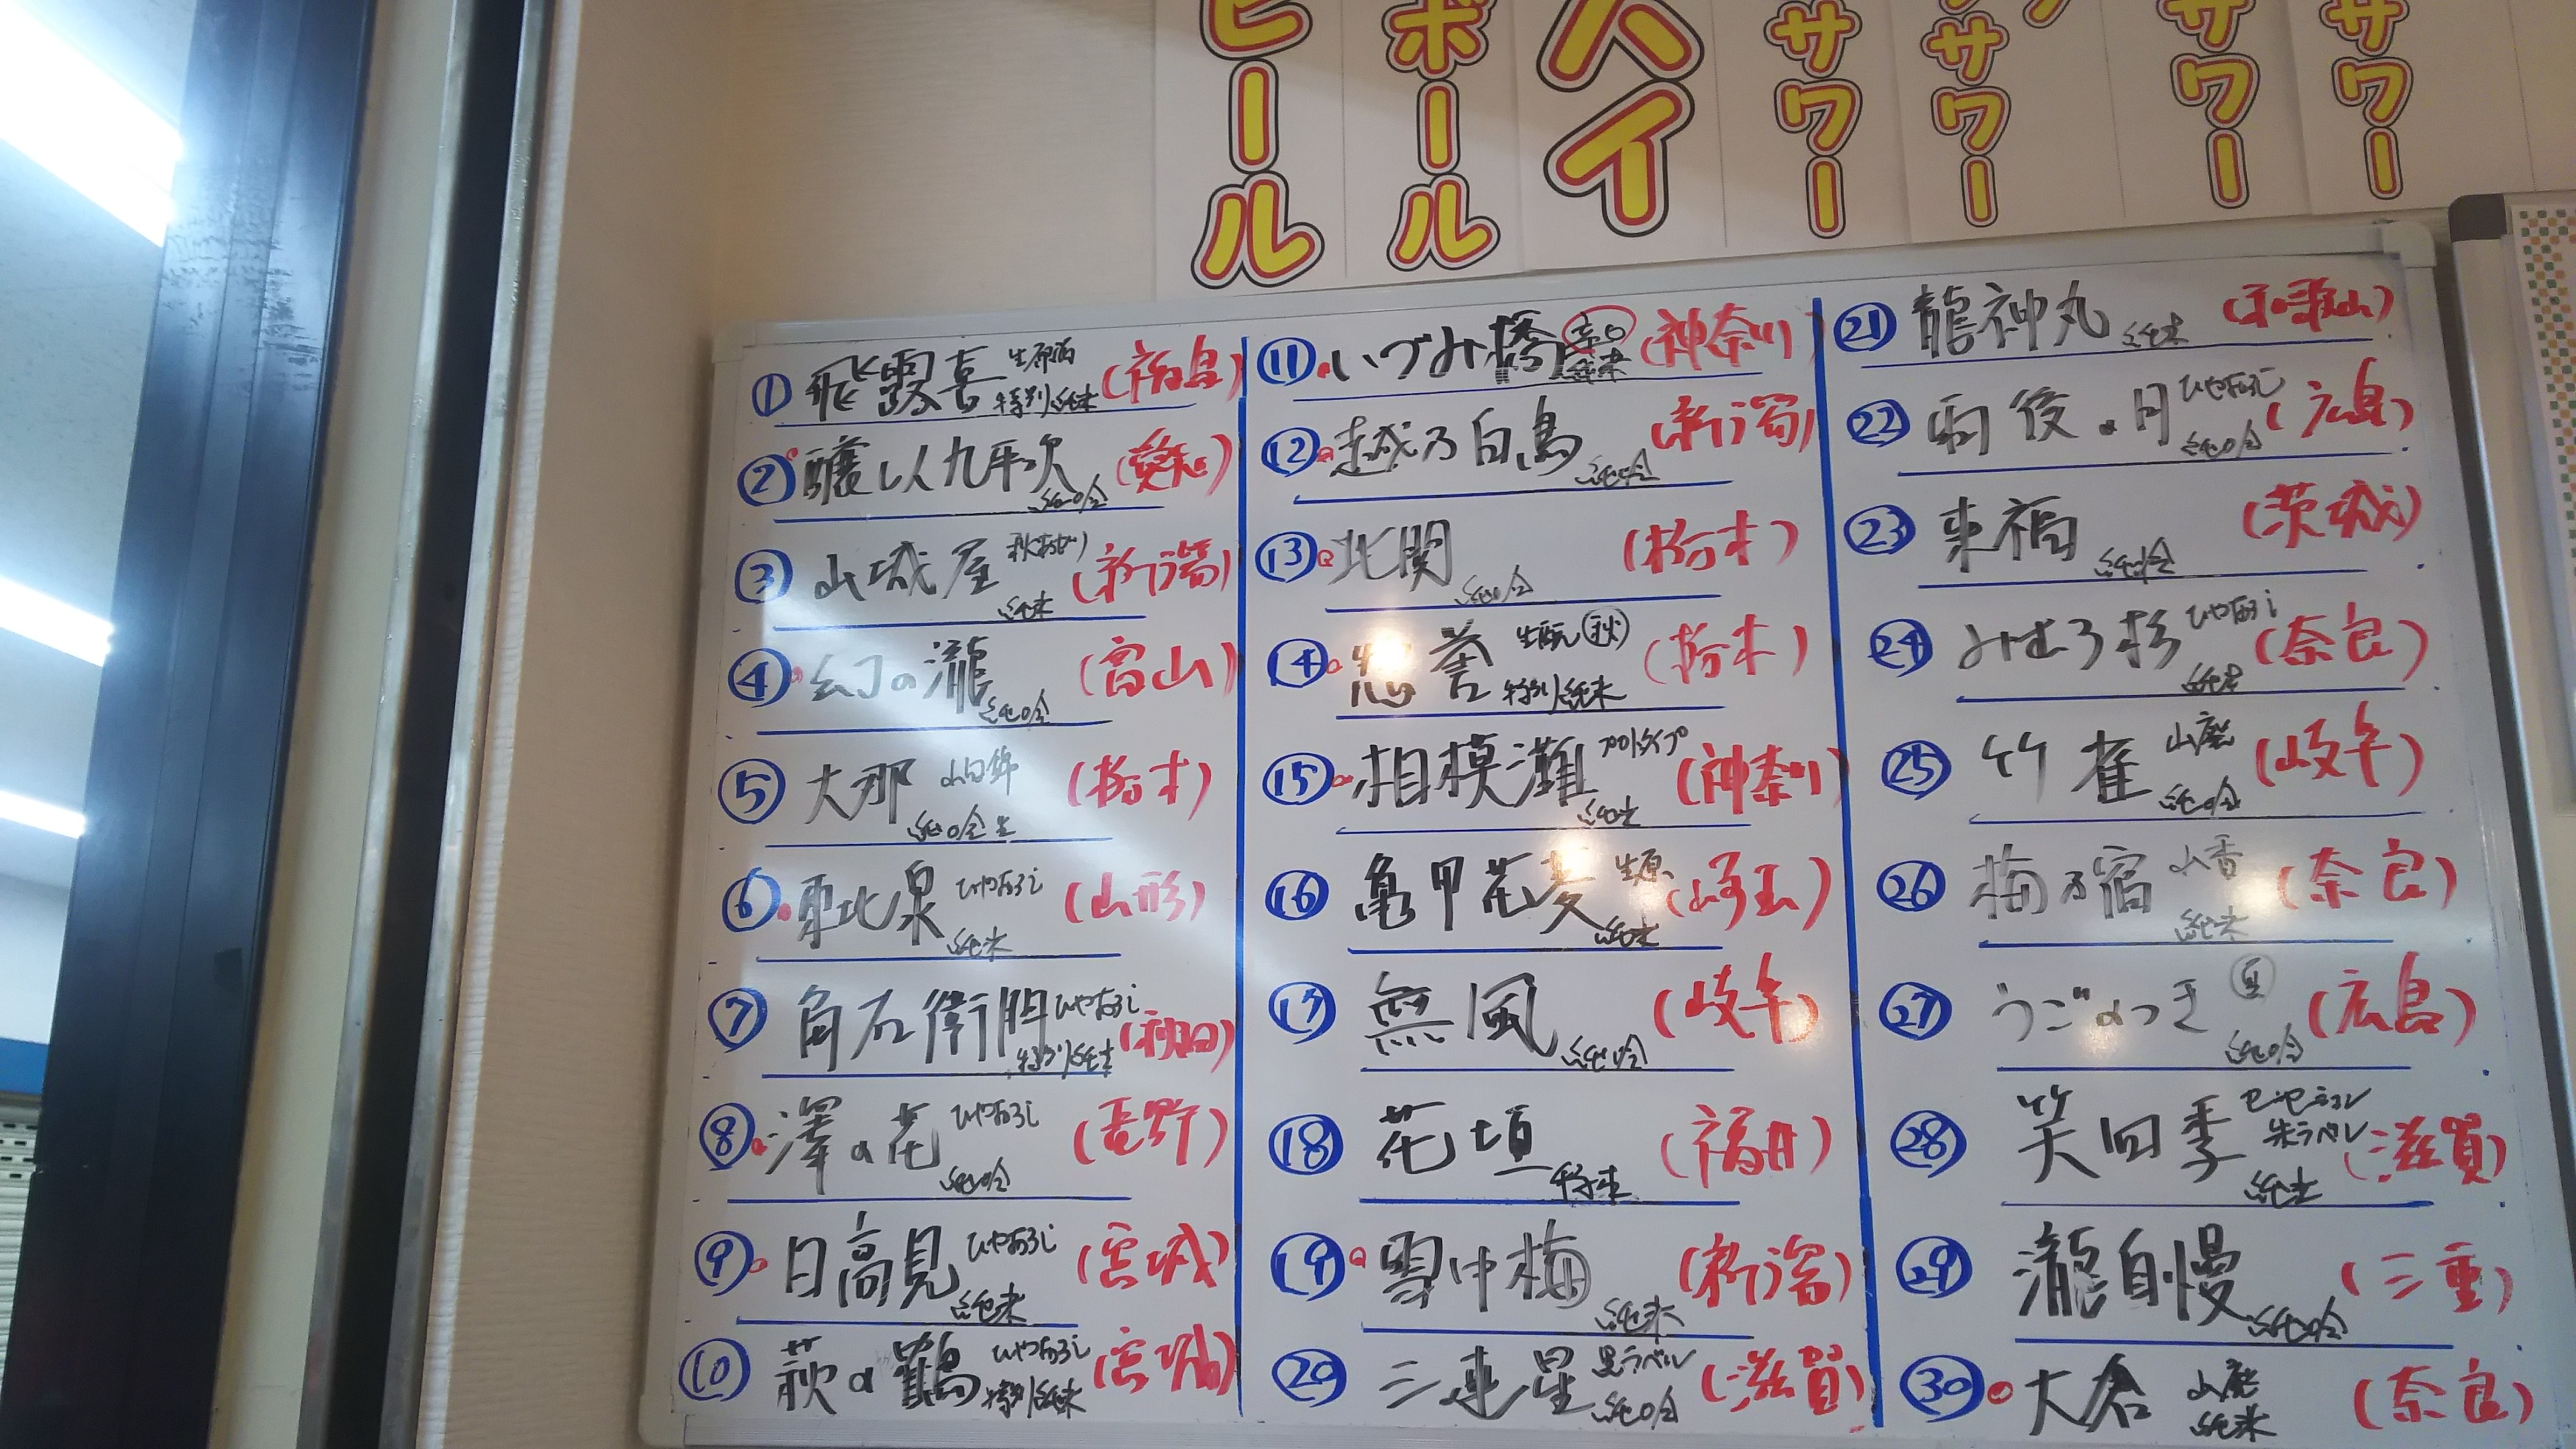 ビール
ボール
ハイ
サワー
サワー
サワー
サワー
① 飛露喜 生原酒 特別純米 (福島)
② 醸し人九平次 純吟 (愛知)
③ 山城屋 秋あがり 純米 (新潟)
④ 幻の瀧 純吟 (富山)
⑤ 大那 山田錦 純吟生 (栃木)
⑥ 東北泉 ひやおろし 純米 (山形)
⑦ 角右衛門 ひやおろし 特別純米 (秋田)
⑧ 澤の花 ひやおろし 純吟 (長野)
⑨ 日高見 ひやおろし 純米 (宮城)
⑩ 萩の鶴 ひやおろし 特別純米 (宮城)
⑪ いづみ橋 辛口 純米 (神奈川)
⑫ 越乃白鳥 純吟 (新潟)
⑬ 北関 純吟 (栃木)
⑭ 惣誉 生酛 秋 特別純米 (栃木)
⑮ 相模灘 プロトタイプ 純米 (神奈川)
⑯ 亀甲花菱 生原 純米 (埼玉)
⑰ 無風 純吟 (岐阜)
⑱ 花垣 特純 (福井)
⑲ 雪中梅 純米 (新潟)
⑳ 三連星 黒ラベル 純吟 (滋賀)
㉑ 龍神丸 純米 (和歌山)
㉒ 雨後の月 ひやおろし 純吟 (広島)
㉓ 来福 純吟 (茨城)
㉔ みむろ杉 ひやおろし 純米 (奈良)
㉕ 竹雀 山廃 純吟 (岐阜)
㉖ 梅乃宿 山香 純米 (奈良)
㉗ うごのつき 夏 純吟 (広島)
㉘ 笑四季 センセーション 朱ラベル 純米 (滋賀)
㉙ 瀧自慢 純吟 (三重)
㉚ 大倉 山廃 純米 (奈良)